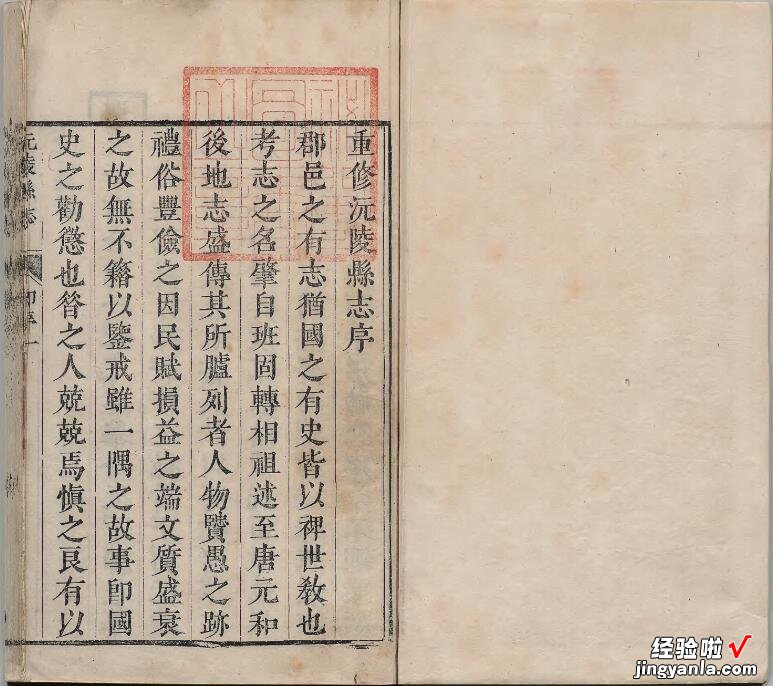 重修沅陵縣志序
郡邑之有志猶國之有史皆以裨世敎也
考志之名肇自班固轉相祖述至唐元和
後地志盛傳其所臚列者人物賢愚之跡
禮俗豐儉之因民賦損益之端文質盛衰
之故無不籍以鑒戒雖一隅之故事卽國
史之勸懲也昝之人兢兢焉慎之良有以
沅陵縣志
经验啦√
jingyanla.com